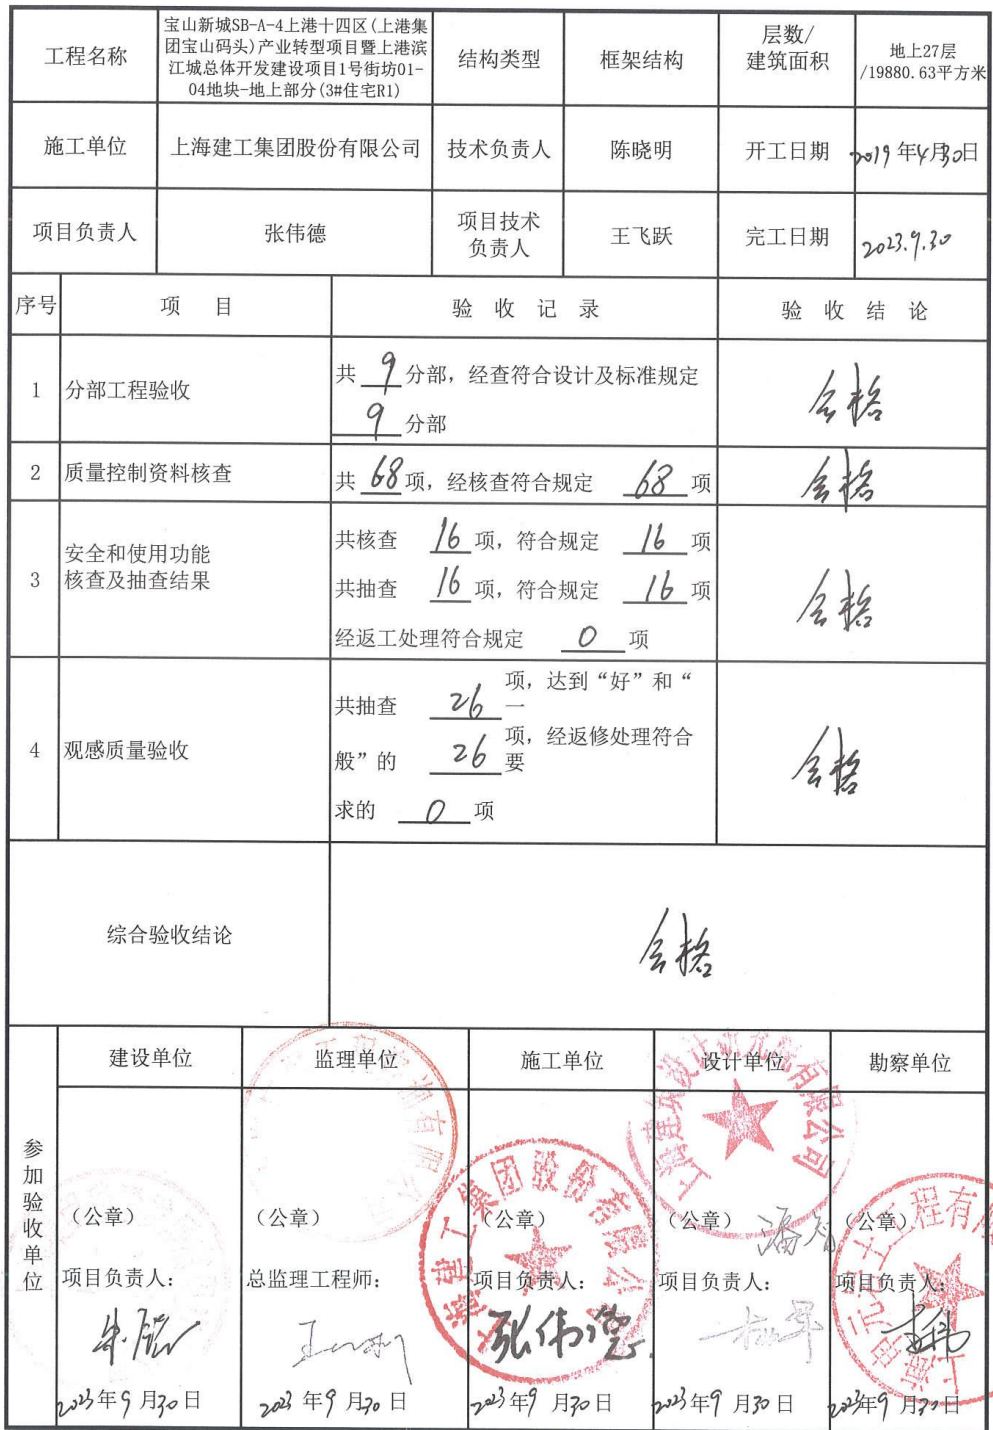 工程名称
宝山新城SB-A-4上港十四区(上港集
团宝山码头)产业转型项目暨上港滨
江城总体开发建设项目1号街坊01-
04地块-地上部分(3#住宅R1)
结构类型
框架结构
层数/
建筑面积
地上27层
/19880.63平方米
施工单位
上海建工集团股份有限公司
技术负责人
陈晓明
开工日期
2019年4月30日
项目负责人
张伟德
项目技术
负责人
王飞跃
完工日期
2023.9.30
序号
项 目
验 收 记 录
验 收 结 论
1
分部工程验收
共 9 分部，经查符合设计及标准规定
9 分部
合格
2
质量控制资料核查
共 68 项，经核查符合规定 68 项
合格
3
安全和使用功能
核查及抽查结果
共核查 16 项，符合规定 16 项
共抽查 16 项，符合规定 16 项
经返工处理符合规定 0 项
合格
4
观感质量验收
共抽查 26 项，达到“好”和“
一
般”的 26 项，经返修处理符合
要
求的 0 项
合格
综合验收结论
合格
参加验收单位
建设单位
监理单位
施工单位
设计单位
勘察单位
（公章）
（公章）
（公章）
（公章）
（公章）
项目负责人：
总监理工程师：
项目负责人：
项目负责人：
项目负责人：
张伟德
2023年9月30日
2023年9月30日
2023年9月30日
2023年9月30日
2023年9月30日
上海建工集团股份有限公司